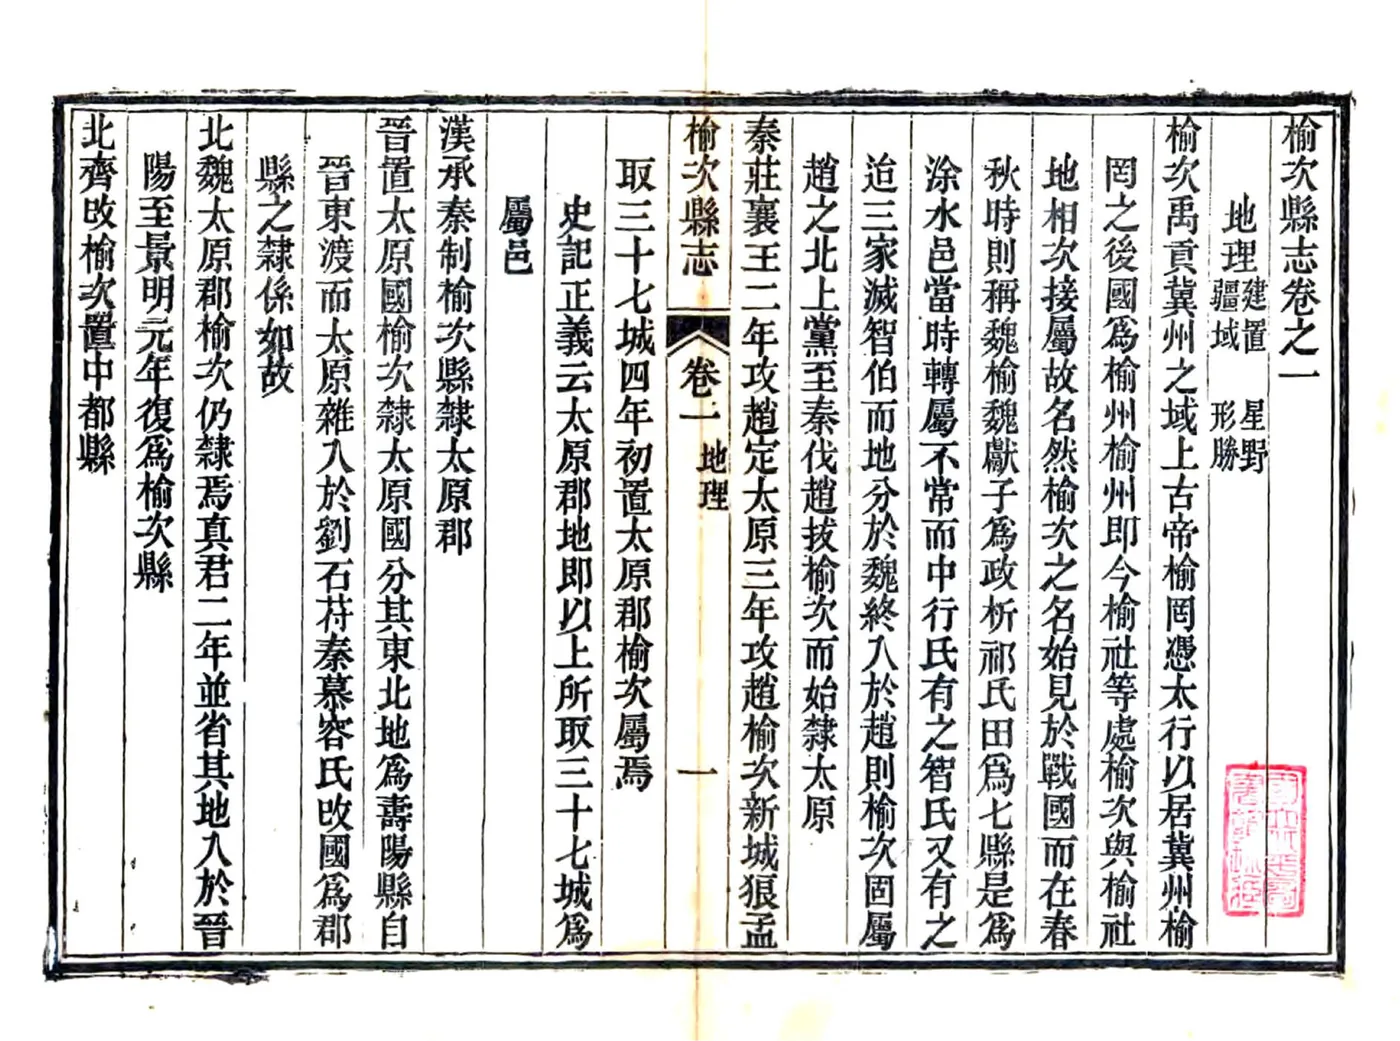 榆次縣志卷之一
地理建置 星野
疆域 形勝
榆次禹貢冀州之域上古帝榆罔憑太行以居冀州榆
罔之後國爲榆州榆州即今榆社等處榆次與榆社
地相次接屬故名然榆次之名始見於戰國而在春
秋時則稱魏榆魏獻子爲政析祁氏田爲七縣是爲
涂水邑當時轉屬不常而中行氏有之智氏又有之
迨三家滅智伯而地分於魏終入於趙則榆次固屬
趙之北上黨至秦伐趙拔榆次而始隸太原
秦莊襄王二年攻趙定太原三年攻趙榆次新城狼孟
榆次縣志 卷一 地理 一
取三十七城四年初置太原郡榆次屬焉
史記正義云太原郡地即以上所取三十七城爲
屬邑
漢承秦制榆次縣隸太原郡
晉置太原國榆次隸太原國分其東北地爲壽陽縣自
晉東渡而太原雜入於劉石苻秦慕容氏改國爲郡
縣之隸係如故
北魏太原郡榆次仍隸焉真君二年並省其地入於晉
陽至景明元年復爲榆次縣
北齊改榆次置中都縣